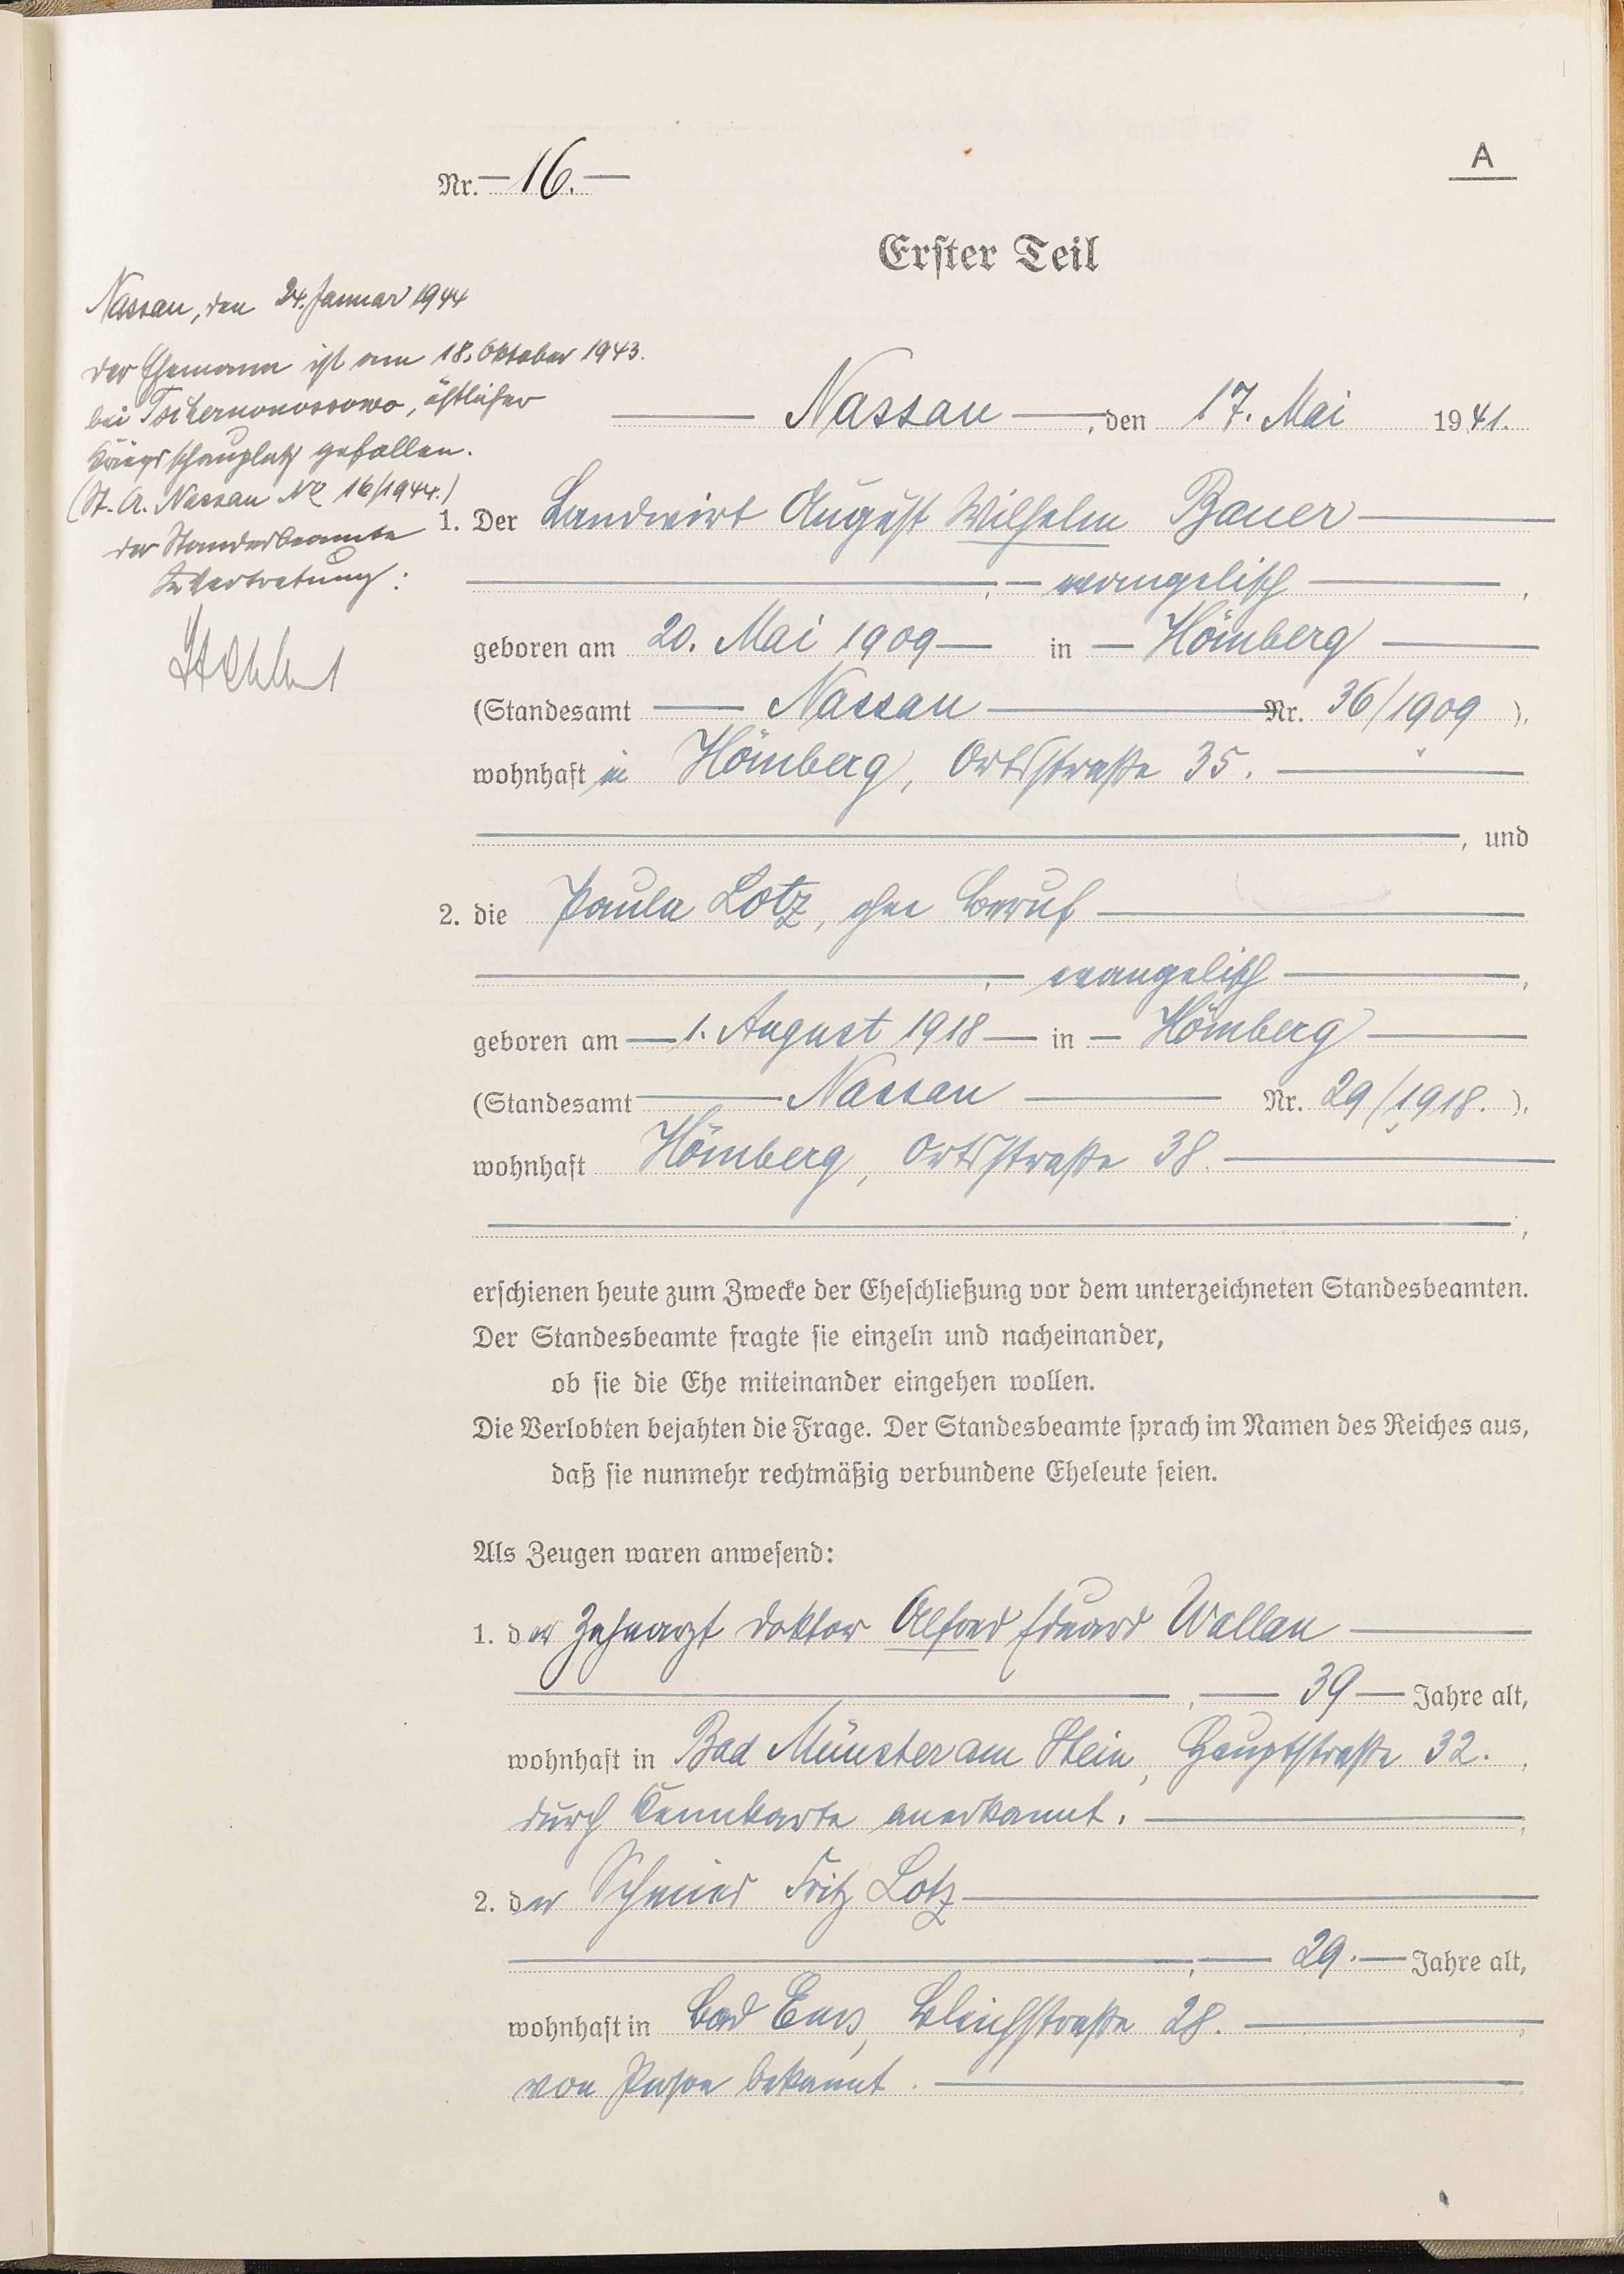 A
Nr. 16.
Erster Teil
Nassau, den 24. Januar 1944
der Ehemann ist am 18. Oktober 1943.
bei Tschernonossowo, östlicher
Kriegsschauplatz gefallen.
(St. A. Nassau Nº 16/1944.)
der Standesbeamte
In Vertretung:
Nassau, den 17. Mai 1941.
1. Der Landwirt August Wilhelm Bauer
, evangelisch,
geboren am 20. Mai 1909 in Hömberg
(Standesamt Nassau Nr. 36/1909),
wohnhaft in Hömberg, Ortsstraße 35.
, und
2. die Paula Lotz, ohne Beruf
, evangelisch,
geboren am 1. August 1918 in Hömberg
(Standesamt Nassau Nr. 29/1918.),
wohnhaft Hömberg, Ortsstraße 38.
,
erschienen heute zum Zwecke der Eheschließung vor dem unterzeichneten Standesbeamten.
Der Standesbeamte fragte sie einzeln und nacheinander,
ob sie die Ehe miteinander eingehen wollen.
Die Verlobten bejahten die Frage. Der Standesbeamte sprach im Namen des Reiches aus,
daß sie nunmehr rechtmäßig verbundene Eheleute seien.
Als Zeugen waren anwesend:
1. der Zahnarzt Doktor Alfred Eduard Wallau
, 39 Jahre alt,
wohnhaft in Bad Münster am Stein, Hauptstraße 32.,
durch Kennkarte anerkannt.,
2. der Schmied Fritz Lotz
, 29. Jahre alt,
wohnhaft in Bad Ems, Bleichstraße 28.,
von Person bekannt.